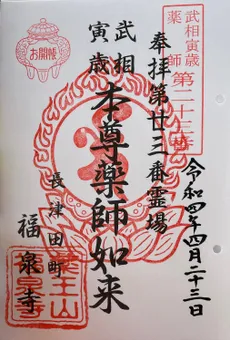 武相寅歳
薬師 第二十三番
奉拝第廿三番霊場
令和四年四月二十三日
武相
寅歳
本尊薬師如来
長津田町
福泉寺
お開帳
薬王山
福泉寺